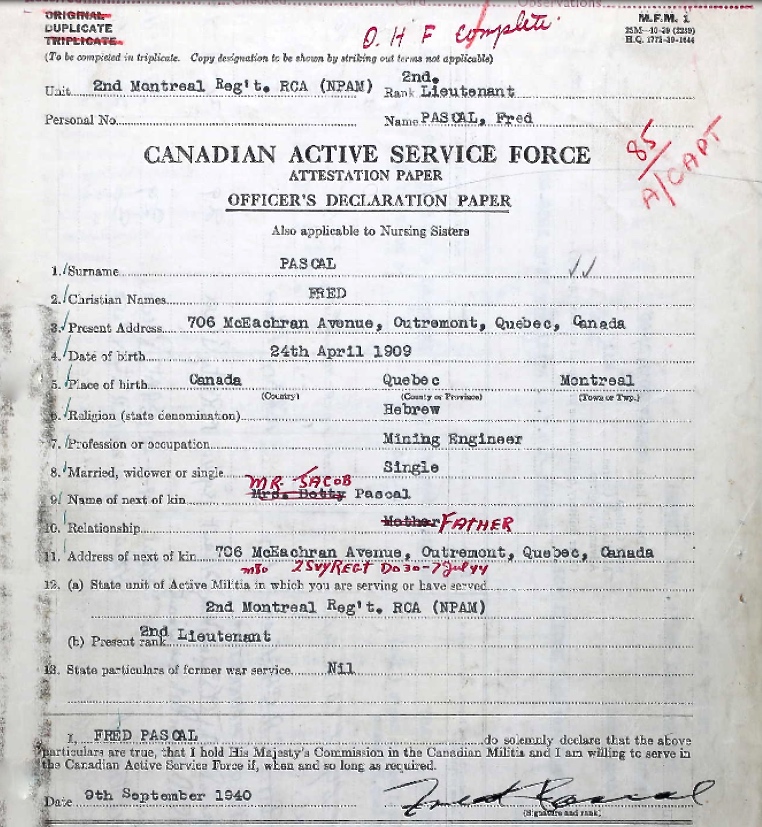 ORIGINAL
DUPLICATE
TRIPLICATE
O. H F complete.
M.F.M. 1
25M—10-39 (2239)
H.Q. 1772-39-1644
(To be completed in triplicate. Copy designation to be shown by striking out terms not applicable)
Unit 2nd Montreal Reg't. RCA (NPAM) Rank 2nd. Lieutenant
Personal No. Name PASCAL, Fred
85
A/CAPT
CANADIAN ACTIVE SERVICE FORCE
ATTESTATION PAPER
OFFICER'S DECLARATION PAPER
Also applicable to Nursing Sisters
1. Surname PASCAL
2. Christian Names FRED
3. Present Address 706 McEachran Avenue, Outremont, Quebec, Canada
4. Date of birth 24th April 1909
5. Place of birth Canada Quebec Montreal
(Country) (County or Province) (Town or Twp.)
6. Religion (state denomination) Hebrew
7. Profession or occupation Mining Engineer
8. Married, widower or single Single
MR. JACOB
9. Name of next of kin Mrs. Betty Pascal
10. Relationship Mother FATHER
11. Address of next of kin 706 McEachran Avenue, Outremont, Quebec, Canada
2 SVY REGT DO 30-7 Jul 44
12. (a) State unit of Active Militia in which you are serving or have served
2nd Montreal Reg't. RCA (NPAM)
(b) Present rank 2nd Lieutenant
13. State particulars of former war service Nil
I, FRED PASCAL do solemnly declare that the above
particulars are true, that I hold His Majesty's Commission in the Canadian Militia and I am willing to serve in
the Canadian Active Service Force if, when and so long as required.
Date 9th September 1940 Fred Pascal
(Signature and rank)